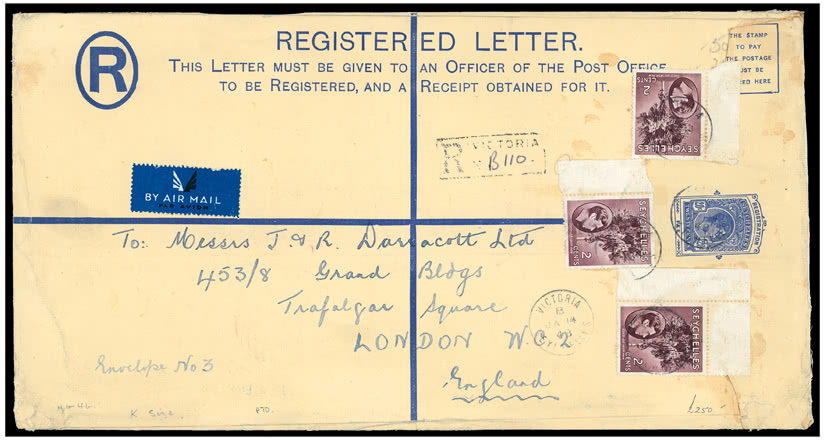 REGISTERED LETTER.
THIS LETTER MUST BE GIVEN TO AN OFFICER OF THE POST OFFICE
TO BE REGISTERED, AND A RECEIPT OBTAINED FOR IT.
R
THE STAMP
TO PAY
THE POSTAGE
MUST BE
ED HERE
50
SEYCHELLES
2
CENTS
R VICTORIA
B110.
BY AIR MAIL
PAR AVION
REGISTRATION
SEYCHELLES
2
CENTS
To: Messrs J. & R. Darracott Ltd
453/8 Grand Bldgs
Trafalgar Square
LONDON W.C.2
England
VICTORIA
SEYCHELLES
2
CENTS
Envelope No 3
K Size.
PTO.
£250-